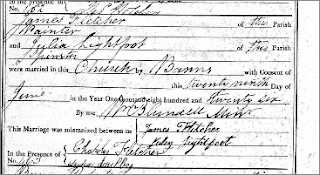 in the Presence of
No. 162
James Fletcher of this Parish
Painter
and Julia Lightfoot of this Parish
Spinster
were married in this Church by Banns with Consent of
this Twenty ninth Day of
June in the Year One thousand eight hundred and Twenty six
By me Wm Blundell Minr
This Marriage was solemnized between us James Fletcher
Lightfoot
In the Presence of Charles Fletcher